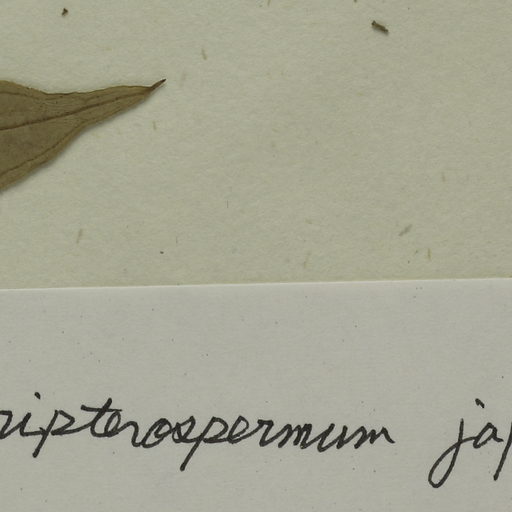 ripterospermum jap